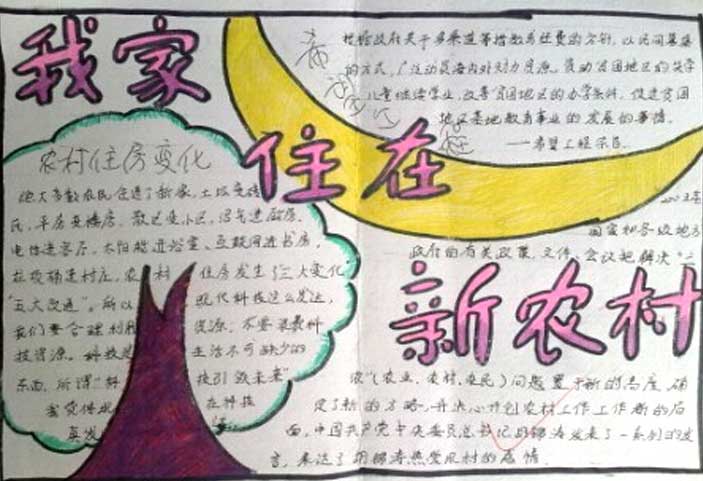 我家
住在
新农村
希望工程
根据政府关于多渠道筹措教育经费的方针,以民间募集
的方式,广泛动员海内外财力资源,资助贫困地区的失学
儿童继续学业,改善贫困地区的办学条件,促进贫困
地区基础教育事业的发展的事情。
——希望工程宗旨
农村住房变化
绝大多数农民住进了新家,土坯变砖
瓦,平房变楼房,散区变小区,沼气进厨房,
电信进客厅,太阳能进浴室、互联网进书房,
垃圾确进村庄,农村住房发生了"三大变化
"五大改通"。所以现代科技这么发达,
我们要合理利用资源,不要浪费科
技资源。科技是生活不可缺少的
东西,所谓"科技引领未来"
我觉得
在科技
国家和各级地方
政府的有关政策、文件、会议把解决"三
农"(农业,农村,农民)问题置于新的高度,确
定了新的方略,并决心开创农村工作工作新的局
面,中国共产党中央委员总书记胡锦涛发表了一系列的发
言,表达了胡锦涛热爱农村的感情。